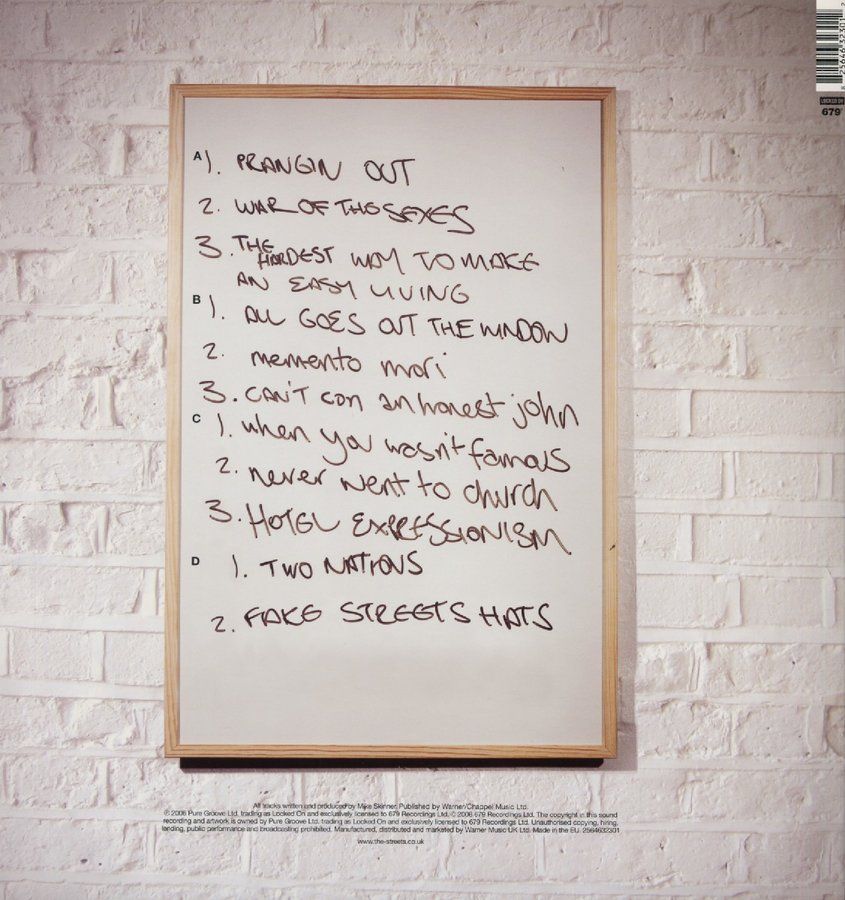 A 1. PRANGIN OUT
2. WAR OF THE SEXES
3. THE HARDEST WAY TO MAKE
AN EASY LIVING
B 1. ALL GOES OUT THE WINDOW
2. memento mori
3. CAN'T con an honest john
C 1. when you wasn't famous
2. never went to church
3. HOTEL EXPRESSIONISM
D 1. TWO NATIONS
2. FAKE STREETS HATS
LOCKED ON
679
All tracks written and produced by Mike Skinner. Published by Warner/Chappel Music Ltd.
℗ 2006 Pure Groove Ltd. trading as Locked On and exclusively licensed to 679 Recordings Ltd. © 2006 679 Recordings Ltd. The copyright in this sound
recording and artwork is owned by Pure Groove Ltd. trading as Locked On and exclusively licensed to 679 Recordings Ltd. Unauthorised copying, hiring,
lending, public performance and broadcasting prohibited. Manufactured, distributed and marketed by Warner Music UK Ltd. Made in the EU. 2564632301
www.the-streets.co.uk